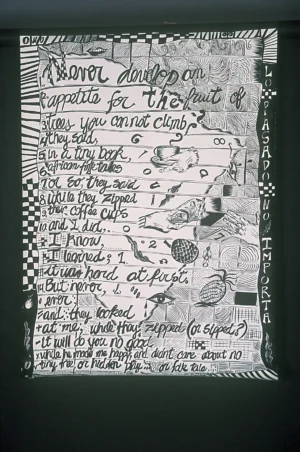 Never develop an
appetite for the fruit of
trees you cannot climb
they said,
in a tiny book,
african tales
or so, they said
while they zipped
their coffee cups
and I did,..
I know,
I learned; I,
it was hard at first.
But never,
ever
and: they looked
at me, while they zipped (or sipped?)
- it will do you no good
while he made me happy and didn't care about no
tiny tree or hidden play... or fake tale...
LO PASADO NO IMPORTA